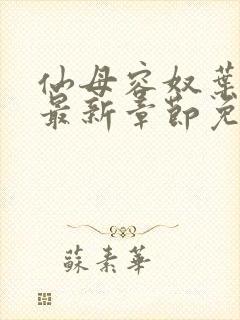 仙母容奴葉
最新章節免
蘇素華